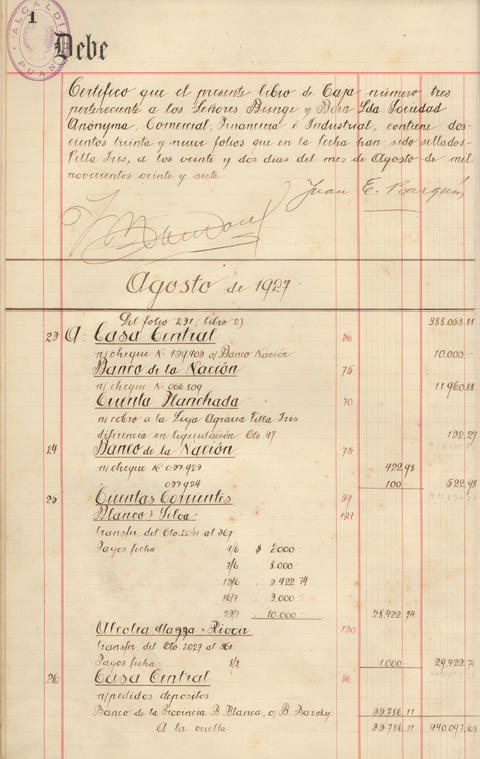 1
ALCALDÍA
PUAN
Debe
Certifico que el presente libro de Caja número tres
perteneciente a los Señores Bunge y Born Lda Sociedad
Anónyma, Comercial, Financiera é Industrial, contiene dos-
cientos treinta y nueve folios que en la fecha han sido sellados.
Villa Iris, a los veinte y dos dias del mes de Agosto de mil
novecientos veinte y siete.
Juan E.
Agosto de 1927.
Del folio 231 (libro 2) 388.058.81
23 A: Casa Central 56
n/cheque No 199409 o/ Banco Nación 10.000.-
Banco de la Nación 75
n/ cheque No 066.809 11.960.88
Cuenta Planchada 70
n/ cobro a la Liga Agraria Villa Iris
diferencia en liquidación Cto. 47 192.27
24 Banco de la Nación 75
n/ cheque No 097923 422.98
097924 100.- 522.98
25 Cuentas Corrientes 59
Blanco y Silva 121
transfer. del Cto. 2041 al 367:
Pagos fecha 1/6 $ 2.000.-
7/6 " 8.000.-
" 5.422.74
16/7 " 3.000.-
23/7 " 10.000.- 28.422.74
130
transfer. del Cto. 2027 al 361:
Pagos fecha 8/8 1.000 29.422.74
26 Casa Central 56
n/pedidos depositos:
Banco de la Provincia B. Blanca, o/ B. Barsky: 39.786.11
A la vuelta 39.786.11 440.097.68